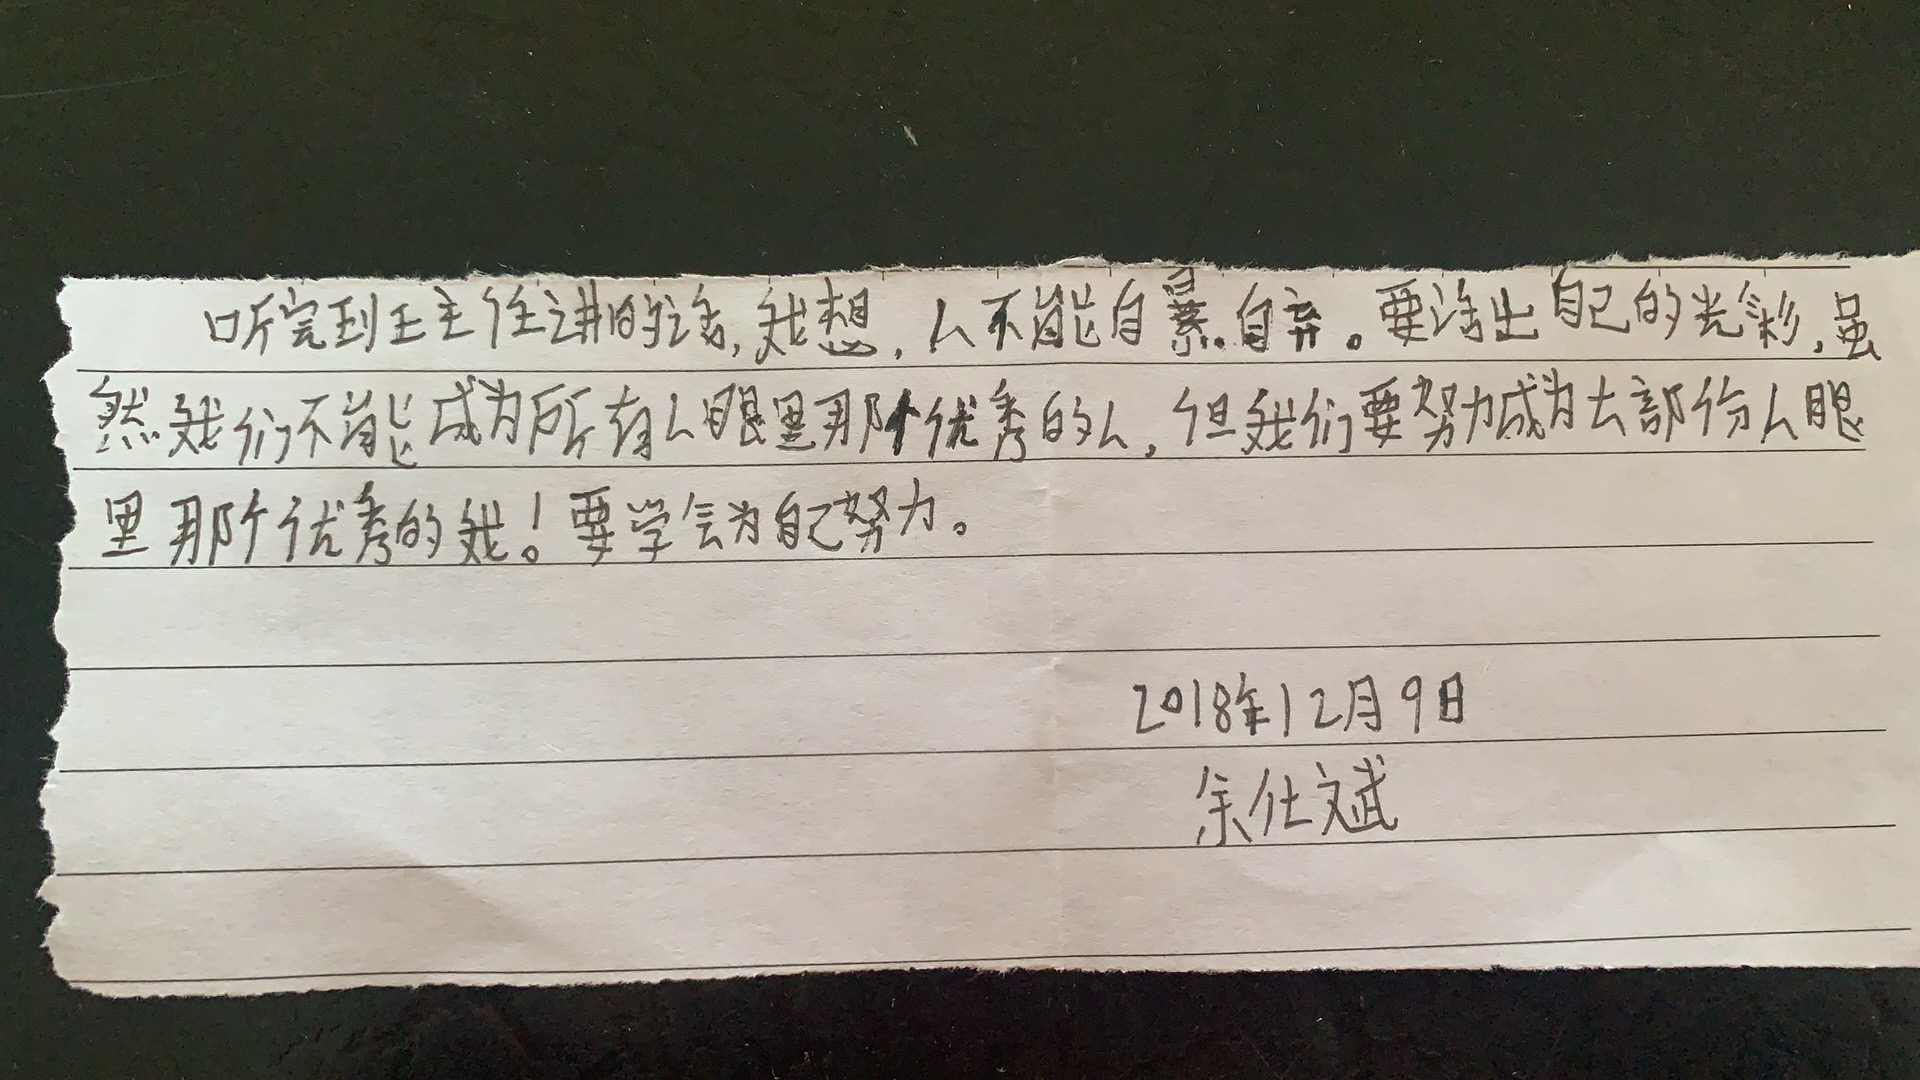 听完到王主任讲的话,我想,人不能自暴自弃。要活出自己的光彩,虽
然我们不能成为所有人眼里那个优秀的人,但我们要努力成为大部份人眼
里那个优秀的我!要学会为自己努力。
2018年12月9日
余仕斌